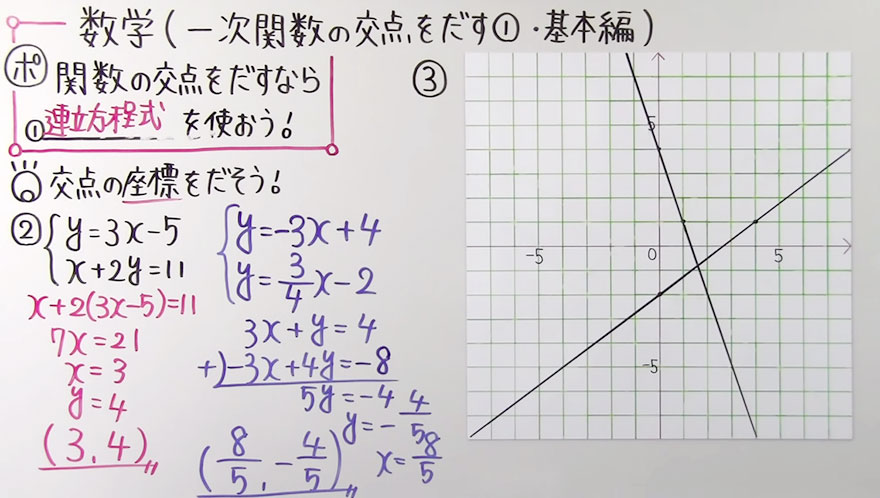 数学(一次関数の交点をだす①・基本編)
ポ 関数の交点をだすなら
①連立方程式 を使おう!
交点の座標をだそう!
② { y=3x-5
x+2y=11
x+2(3x-5)=11
7x=21
x=3
y=4
(3,4)
{ y=-3x+4
y=3/4x-2
3x+y=4
+)-3x+4y=-8
5y=-4
y=-4/5
x=8/5
(8/5,-4/5)
③
5
-5 0 5
-5